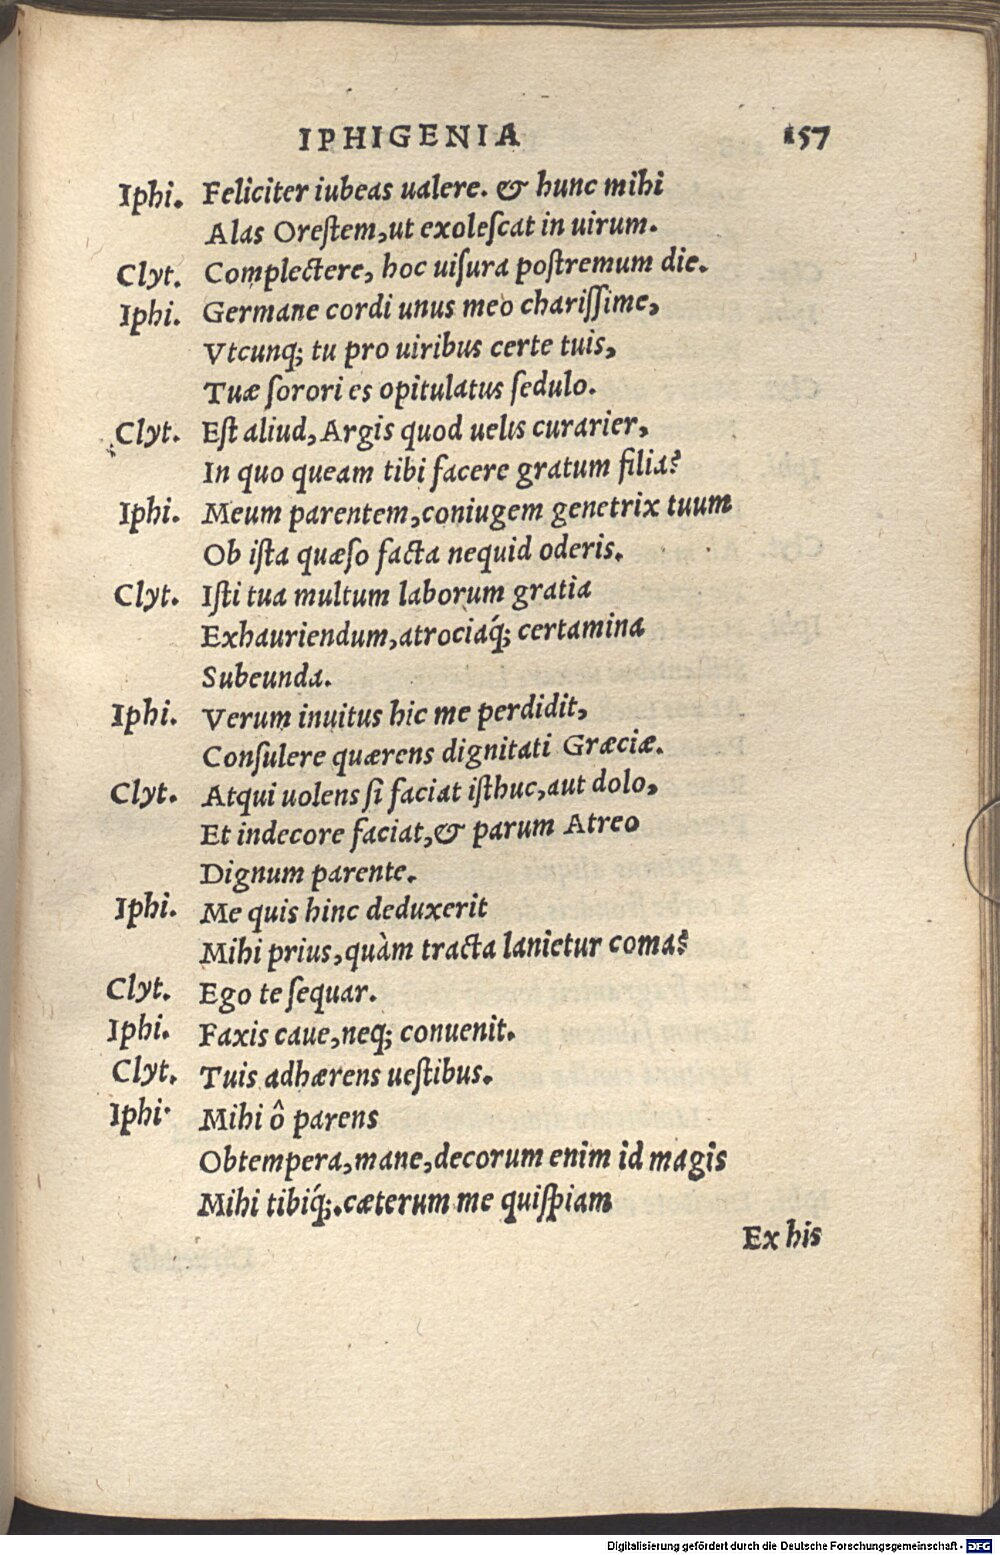 IPHIGENIA 157
Iphi. Feliciter iubeas ualere. & hunc mihi
Alas Oreſtem,ut exoleſcat in uirum.
Clyt. Complectere, hoc uiſura poſtremum die.
Iphi. Germane cordi unus meo chariſſime,
Vtcunq; tu pro uiribus certe tuis,
Tuæ ſorori es opitulatus ſedulo.
Clyt. Eſt aliud, Argis quod uelis curarier,
In quo queam tibi facere gratum filia?
Iphi. Meum parentem,coniugem genetrix tuum
Ob iſta quæſo facta nequid oderis.
Clyt. Iſti tua multum laborum gratia
Exhauriendum,atrociaq́; certamina
Subeunda.
Iphi. Verum inuitus hic me perdidit,
Conſulere quærens dignitati Græciæ.
Clyt. Atqui uolens ſi faciat iſthuc,aut dolo,
Et indecore faciat,& parum Atreo
Dignum parente.
Iphi. Me quis hinc deduxerit
Mihi prius,quàm tracta lanietur coma?
Clyt. Ego te ſequar.
Iphi. Faxis caue,neq; conuenit.
Clyt. Tuis adhærens ueſtibus.
Iphi. Mihi ô parens
Obtempera,mane,decorum enim id magis
Mihi tibiq́;.cæterum me quiſpiam
Ex his
Digitalisierung gefördert durch die Deutsche Forschungsgemeinschaft - DFG